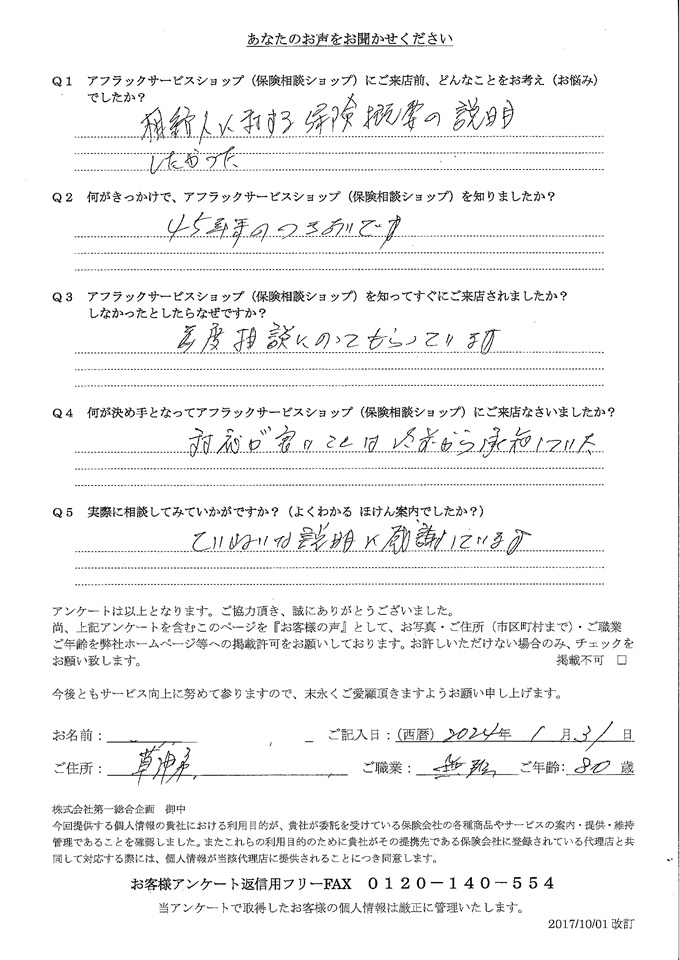 あなたのお声をお聞かせください
Q1 アフラックサービスショップ（保険相談ショップ）にご来店前、どんなことをお考え（お悩み）
でしたか？
相続人に対する保険概要の説明
したかった
Q2 何がきっかけで、アフラックサービスショップ（保険相談ショップ）を知りましたか？
45年来のつきあいです
Q3 アフラックサービスショップ（保険相談ショップ）を知ってすぐにご来店されましたか？
しなかったとしたらなぜですか？
相談にのってもらっています
Q4 何が決め手となってアフラックサービスショップ（保険相談ショップ）にご来店なさいましたか？
対応が良いことは 承知していた
Q5 実際に相談してみていかがですか？（よくわかる ほけん案内でしたか？）
ていねいな説明に感謝しています
アンケートは以上となります。ご協力頂き、誠にありがとうございました。
尚、上記アンケートを含むこのページを『お客様の声』として、お写真・ご住所（市区町村まで）・ご職業
ご年齢を弊社ホームページ等への掲載許可をお願いしております。お許しいただけない場合のみ、チェックを
お願い致します。 掲載不可 □
今後ともサービス向上に努めて参りますので、末永くご愛顧頂きますようお願い申し上げます。
お名前： ご記入日：（西暦）2024年 1月31日
ご住所：草津市 ご職業：無職 ご年齢：80歳
株式会社第一総合企画 御中
今回提供する個人情報の貴社における利用目的が、貴社が委託を受けている保険会社の各種商品やサービスの案内・提供・維持
管理であることを確認しました。またこれらの利用目的のために貴社がその提携先である保険会社に登録されている代理店と共
同して対応する際には、個人情報が当該代理店に提供されることにつき同意します。
お客様アンケート返信用フリーFAX 0120-140-554
当アンケートで取得したお客様の個人情報は厳正に管理いたします。
2017/10/01 改訂